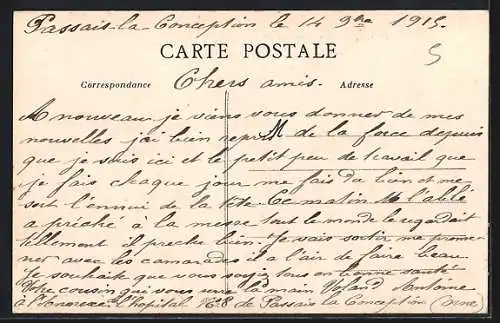 Passais-la-Conception le 14 9bre 1915.
5
CARTE POSTALE
Correspondance
Chers amis.
Adresse
A nouveau je viens vous donner de mes
nouvelles j'ai bien repris M de la force depuis
que je suis ici et le petit peu de travail que
je fais chaque jour me fais du bien et me
sort l'ennui de la tête. Ce matin M l'abbé
a préché à la messe tout le monde le regardait
tellement il preche bien. Je vais sortir me prome-
ner avec les camarades il a l'air de faire beau.
Je souhait que vous soyiz tous en bonne santé
Votre cousin qui vous serre la main Antoine
à l' l'hopital N° 8 de Passais la Conception (Orne)